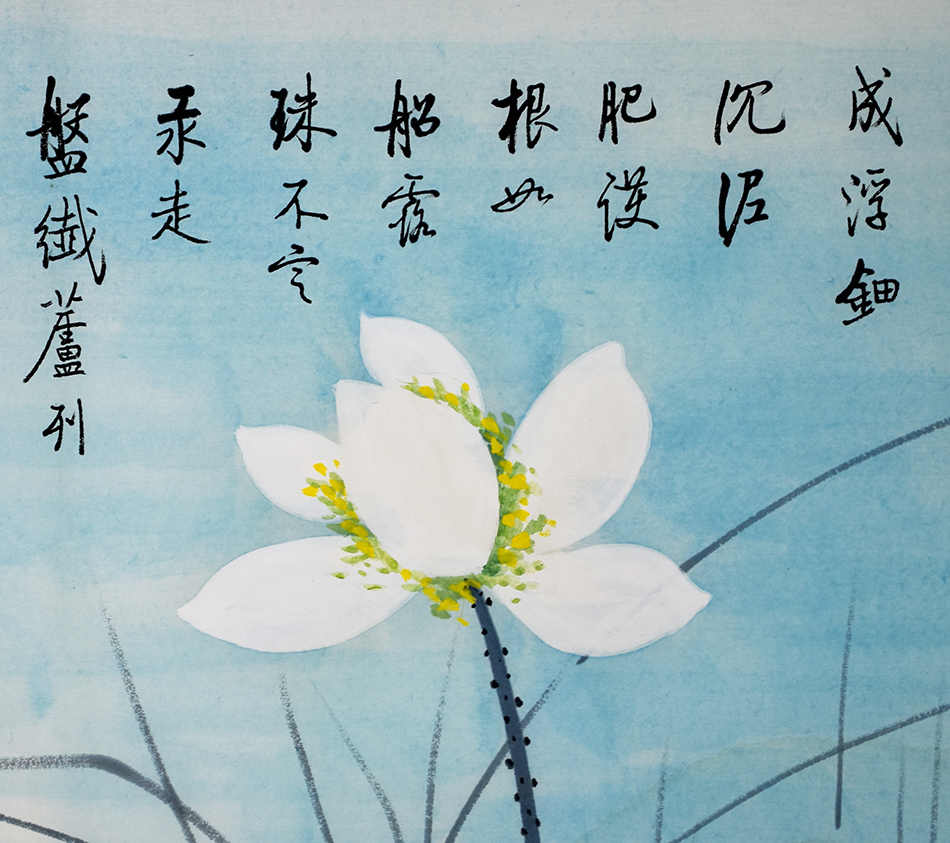 成浮鈿
沉泥
肥護
根如
船露
珠不定
汞走
盤纖蘆列